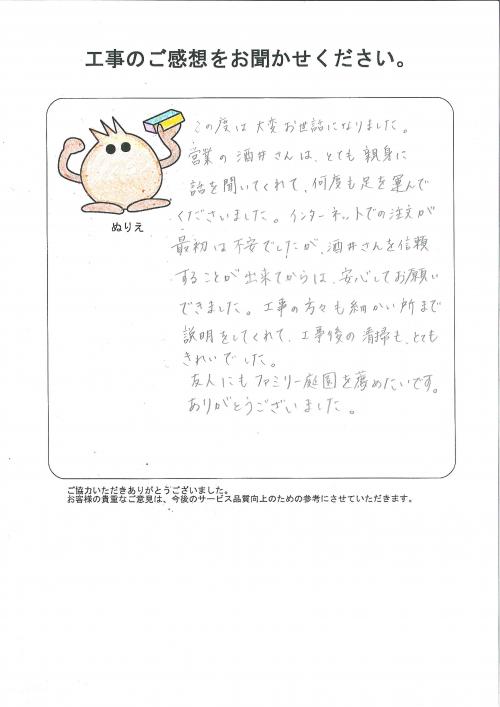 工事のご感想をお聞かせください。
この度は大変お世話になりました。
営業の酒井さんは、とても親身に
話を聞いてくれて、何度も足を運んで
くださいました。インターネットでの注文が
最初は不安でしたが、酒井さんを信頼
することが出来てからは、安心してお願い
できました。工事の方々も細かい所まで
説明をしてくれて、工事後の清掃も、とても
きれいでした。
友人にもファミリー庭園を薦めたいです。
ありがとうございました。
ぬりえ
ご協力いただきありがとうございました。
お客様の貴重なご意見は、今後のサービス品質向上のための参考にさせていただきます。